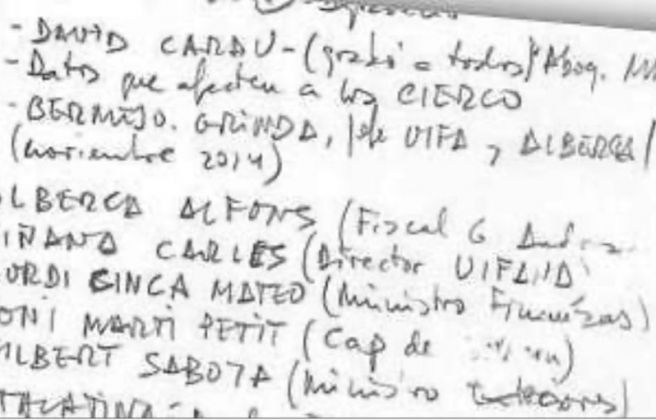 - DAVID CARDU - (grabó a todos) Abog.
- Datos que afecten a los CIERCO
- BERMEJO. GRINDA, jefe UIFA y ALBERCA/
(noviembre 2014)
LBERCA ALFONS (Fiscal G
IÑANA CARLES (Director
ORDI CINCA MATEO (Ministro Finanzas)
ONI MARTI PETIT (Cap de
LBERT SABOYA (Ministro